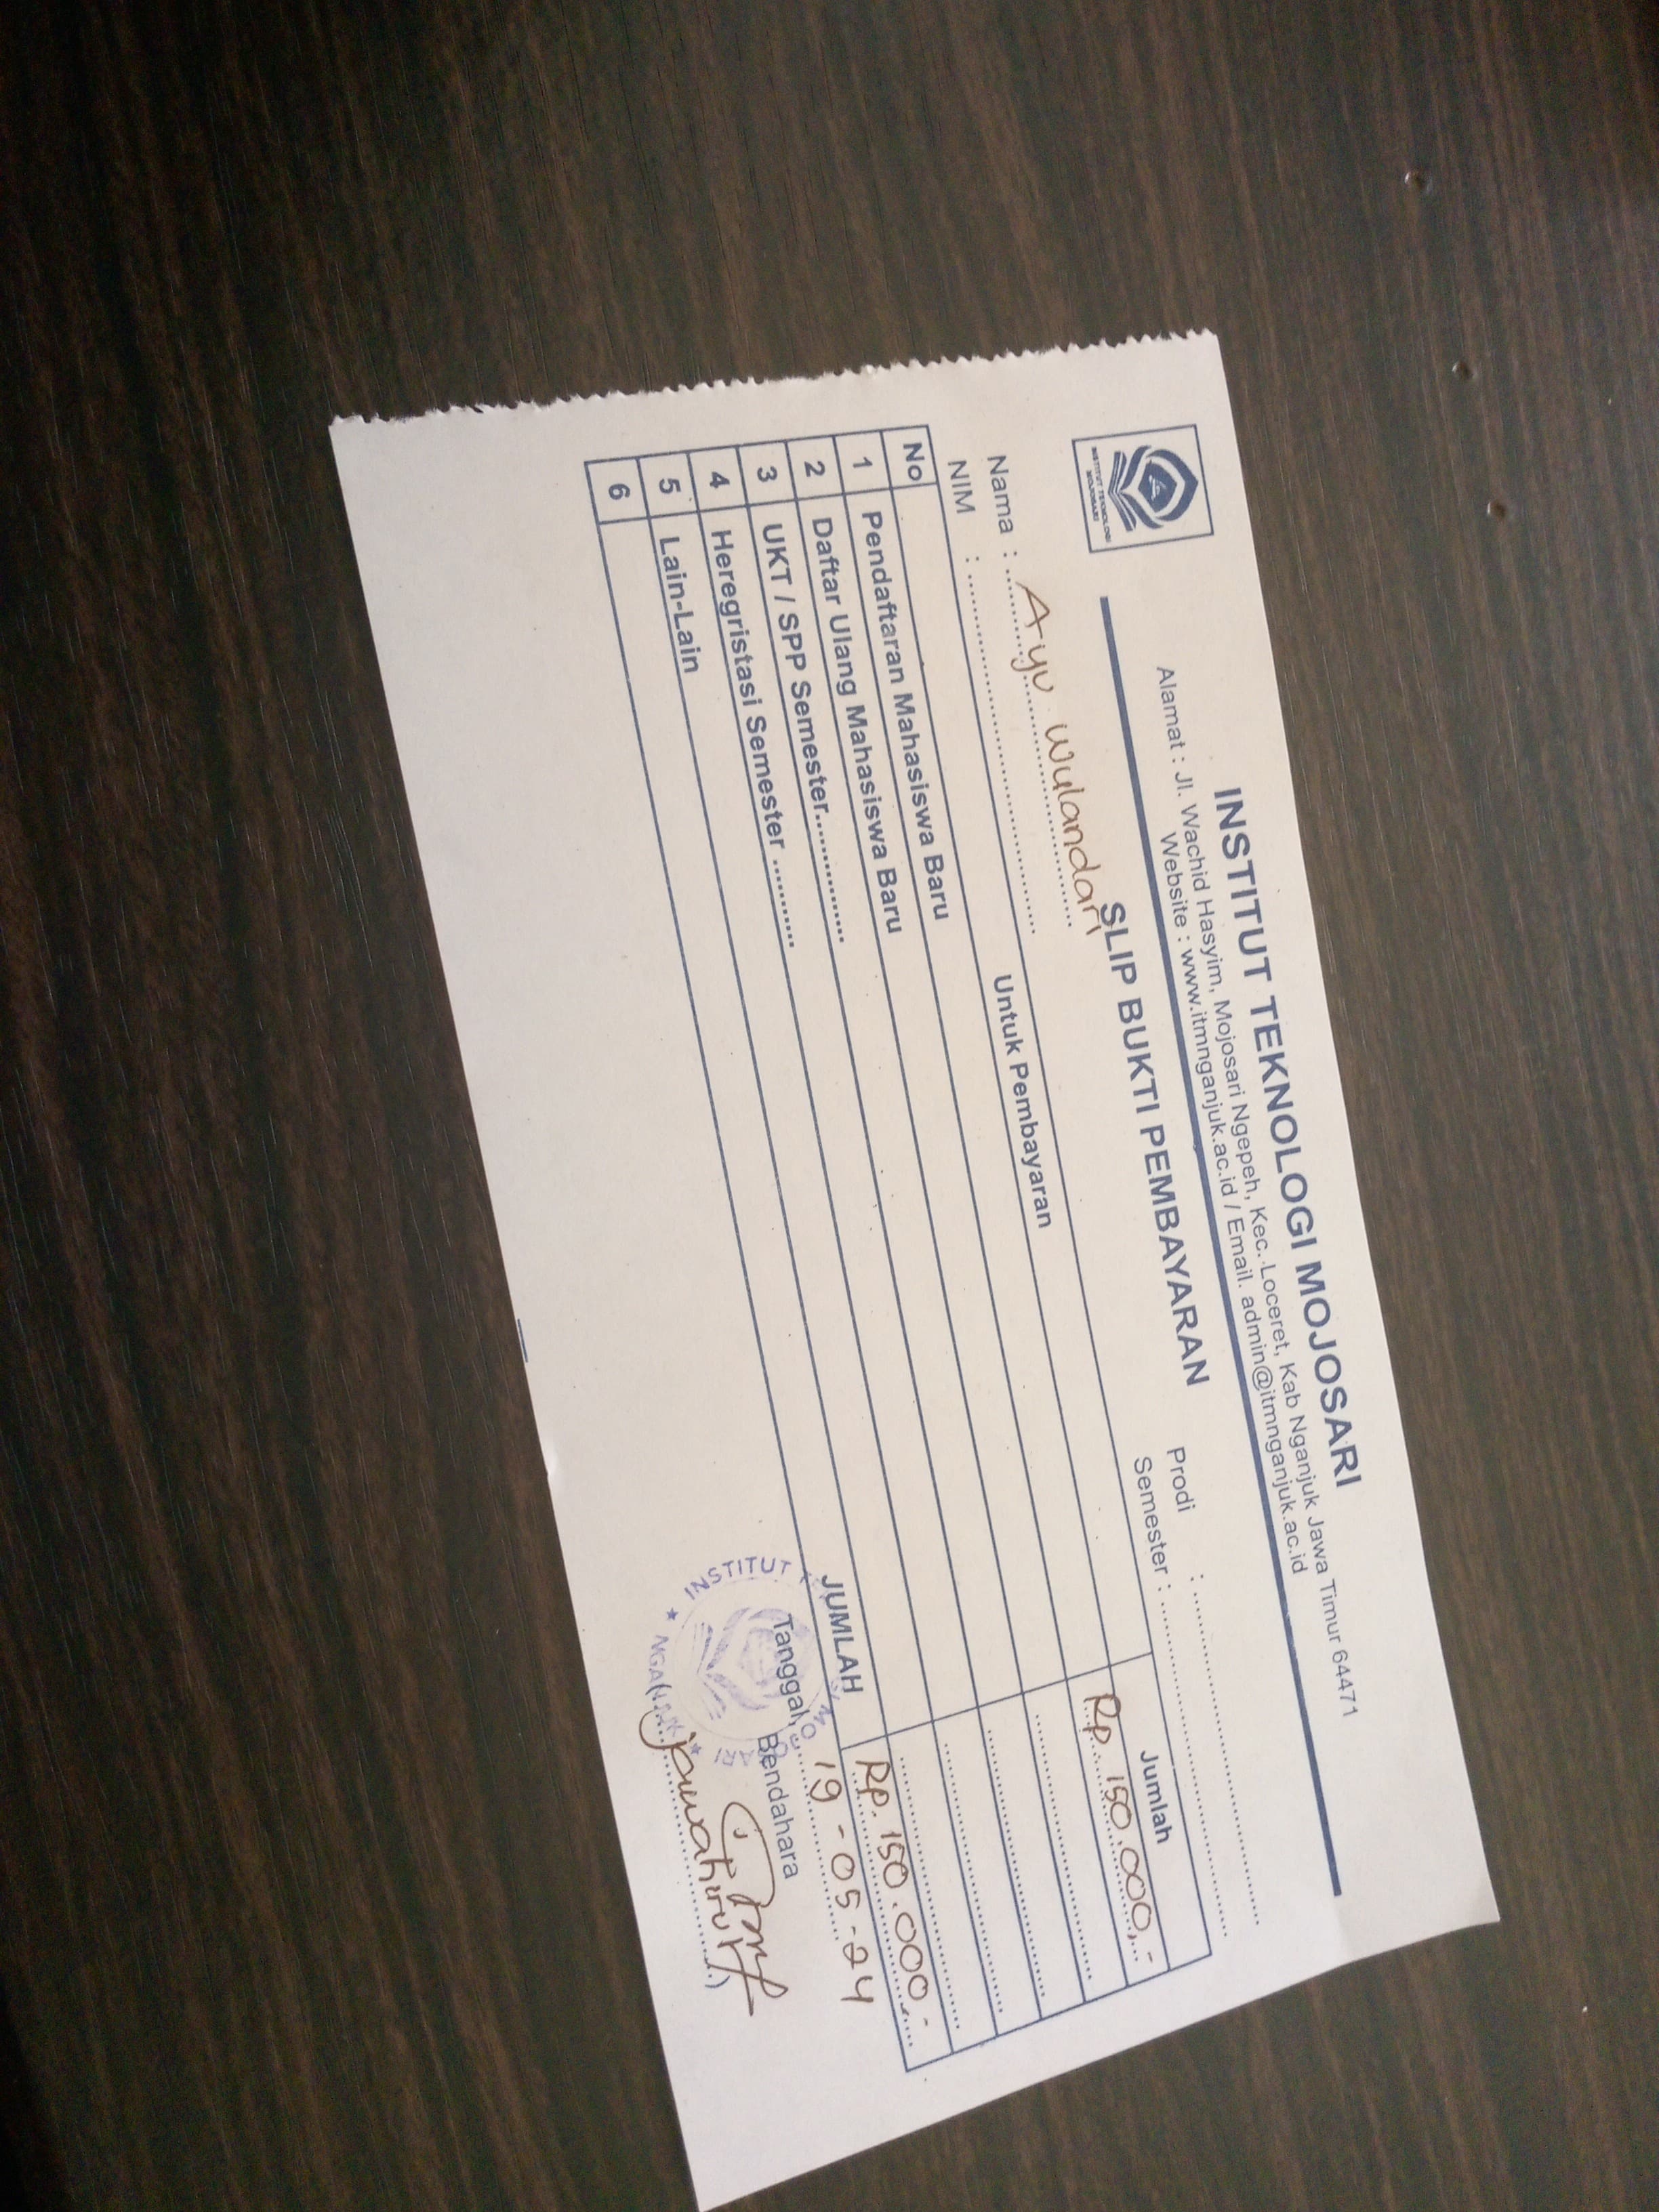 INSTITUT TEKNOLOGI
MOJOSARI
INSTITUT TEKNOLOGI MOJOSARI
Alamat : Jl. Wachid Hasyim, Mojosari Ngepeh, Kec. Loceret, Kab Nganjuk Jawa Timur 64471
Website : www.itmnganjuk.ac.id / Email. admin@itmnganjuk.ac.id
SLIP BUKTI PEMBAYARAN
Nama : Ayu Wulandari
Prodi :
NIM :
Semester :
No Untuk Pembayaran Jumlah
1 Pendaftaran Mahasiswa Baru Rp 150.000,-
2 Daftar Ulang Mahasiswa Baru
3 UKT / SPP Semester..............
4 Heregristasi Semester ...........
5 Lain-Lain
6
JUMLAH Rp. 150.000,-
Tanggal, 19-05-24
Bendahara
INSTITUT
NGANJUK